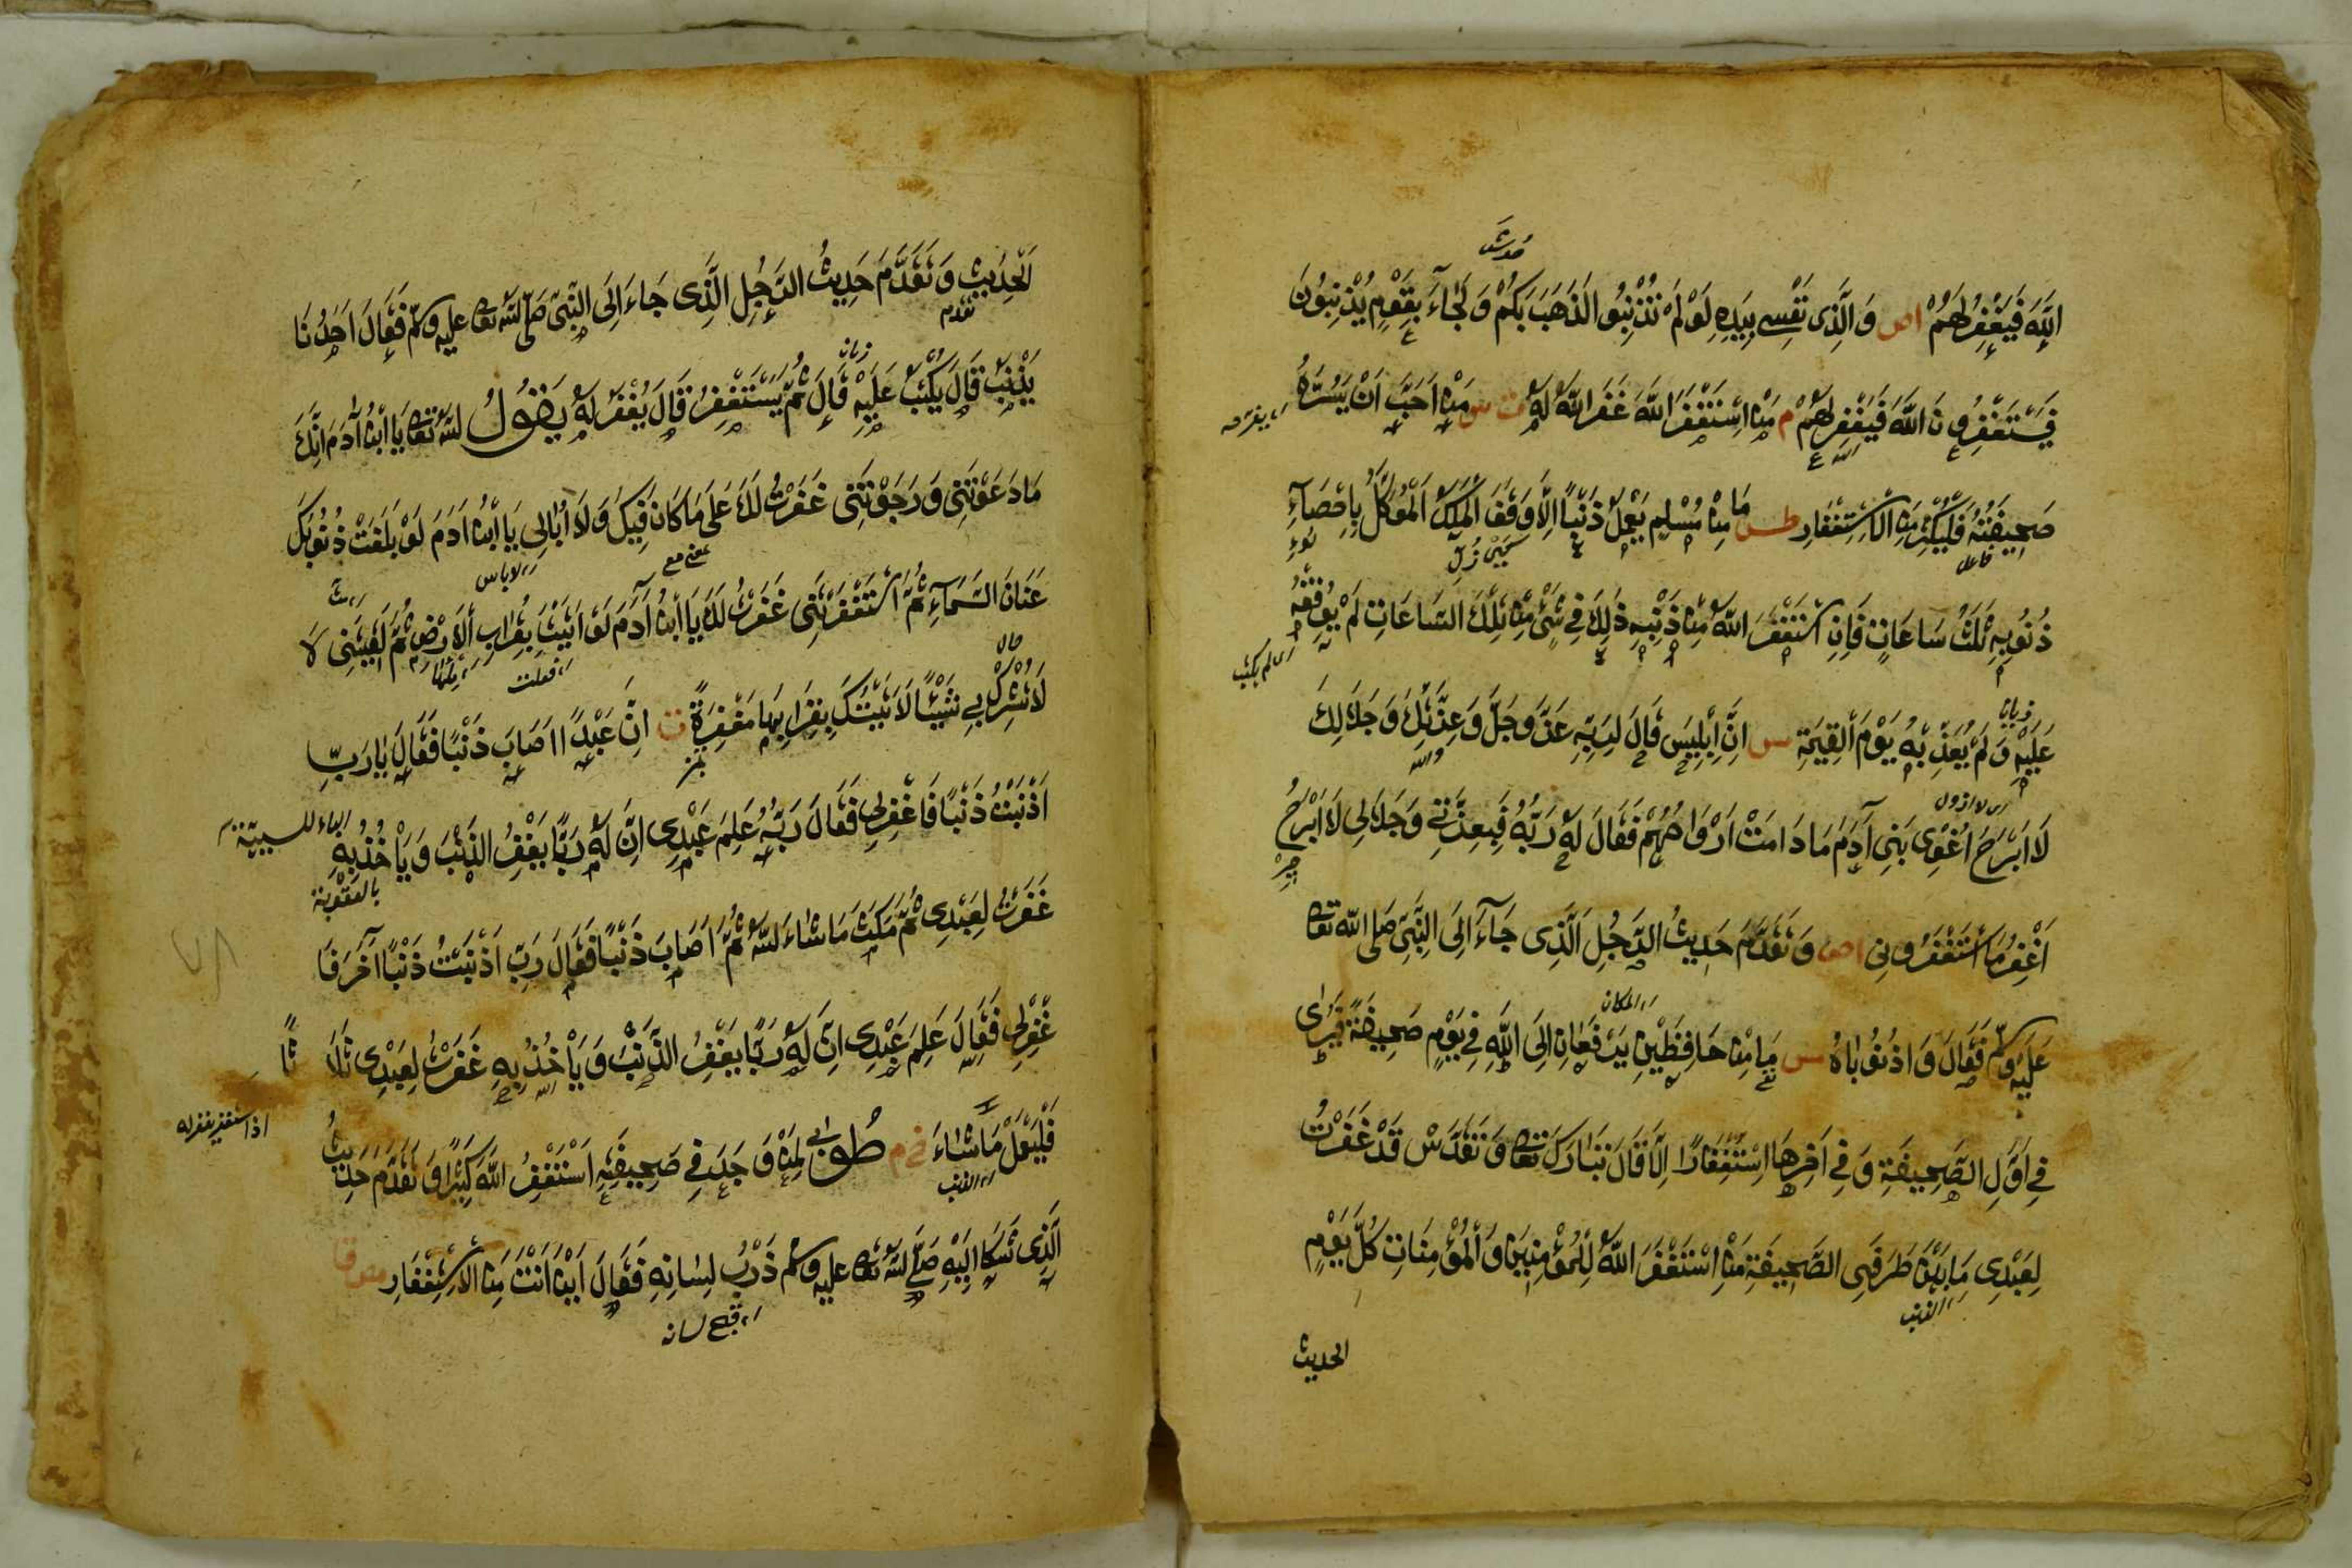 اللَّهَ فَيَغْفِرُ لَهُمْ اص وَالَّذِى نَفْسِى بِيَدِهِ لَوْ لَمْ تُذْنِبُوا لَذَهَبَ بِكُمْ وَلَجَاءَ بِقَوْمٍ يُذْنِبُونَ
فَيَسْتَغْفِرُونَ اللَّهَ فَيَغْفِرُ لَهُمْ م مَنِ اسْتَغْفَرَ اللَّهَ غَفَرَ اللَّهُ لَهُ ت س مَنْ اَحَبَّ اَنْ يَسُرَّهُ
صَحِيفَتُهُ فَلْيُكْثِرْ مِنَ الْاِسْتِغْفَارِ طس مَا مِنْ مُسْلِمٍ يَعْمَلُ ذَنْبًا اِلَّا وَقَفَ الْمَلَكُ الْمُوَكَّلُ بِاِحْصَآءِ
فاعل
ذُنُوبِهِ ثَلٰثَ سَاعَاتٍ فَاِنِ اسْتَغْفَرَ اللَّهَ مِنْ ذَنْبِهِ ذٰلِكَ فِى شَىْءٍ مِنْ تِلْكَ السَّاعَاتِ لَمْ يُوقِفْهُ
اى لم يكتب
عَلَيْهِ وَلَمْ يُعَذَّبْ بِهِ يَوْمَ الْقِيٰمَةِ مس اِنَّ اِبْلِيسَ قَالَ لِرَبِّهِ عَزَّ وَجَلَّ وَعِزَّتِكَ وَجَلَالِكَ
اى لا ازول
لَا اَبْرَحُ اُغْوِى بَنِى آدَمَ مَا دَامَتْ اَرْوَاحُهُمْ فَقَالَ لَهُ رَبُّهُ فَبِعِزَّتِى وَجَلَالِى لَا اَبْرَحُ
اَغْفِرُ مَا اسْتَغْفَرُونِى اص وَتَقَدَّمَ حَدِيثُ الرَّجُلِ الَّذِى جَآءَ اِلَى النَّبِىِّ صَلَّى اللَّهُ تَعَا
عَلَيْهِ وَسَلَّمَ فَقَالَ وَاذُنُوبَاهُ مس مَا مِنْ حَافِظَيْنِ يَرْفَعَانِ اِلَى اللَّهِ فِى يَوْمٍ صَحِيفَةً فَيَرٰى
فِى اَوَّلِ الصَّحِيفَةِ وَفِى آخِرِهَا اِسْتِغْفَارًا اِلَّا قَالَ تَبَارَكَ وَتَعَالَى وَتَقَدَّسَ قَدْ غَفَرْتُ
لِعَبْدِى مَا بَيْنَ طَرَفَىِ الصَّحِيفَةِ مَنِ اسْتَغْفَرَ اللَّهَ لِلْمُؤْمِنِينَ وَالْمُؤْمِنَاتِ كُلَّ يَوْمٍ
الذنب
الحديث
اَلْحَدِيثَ وَتَقَدَّمَ حَدِيثُ الرَّجُلِ الَّذِى جَاءَ اِلَى النَّبِىِّ صَلَّى اللَّهُ تَعَا عليه وسلم فَقَالَ اَحَدُنَا
تقدم
يُذْنِبُ قَالَ يُكْتَبُ عَلَيْهِ قَالَ ثُمَّ يَسْتَغْفِرُ قَالَ يُغْفَرُ لَهُ يَقُولُ اللَّهُ تَعَا يَا ابْنَ آدَمَ اِنَّكَ
مَا دَعَوْتَنِى وَرَجَوْتَنِى غَفَرْتُ لَكَ عَلٰى مَا كَانَ فِيكَ وَلَا اُبَالِى يَا ابْنَ اٰدَمَ لَوْ بَلَغَتْ ذُنُوبُكَ
بمعنى مع
عَنَانَ السَّمَآءِ ثُمَّ اسْتَغْفَرْتَنِى غَفَرْتُ لَكَ يَا ابْنَ آدَمَ لَوْ اَتَيْتَ بِقُرَابِ الْاَرْضِ ثُمَّ لَقِيتَنِى لَا
حال
لَا تُشْرِكُ بِى شَيْئًا لَاَتَيْتُكَ بِقُرَابِهَا مَغْفِرَةً ت اِنَّ عَبْدًا اَصَابَ ذَنْبًا فَقَالَ يَا رَبِّ
اَذْنَبْتُ ذَنْبًا فَاغْفِرْ لِى فَقَالَ رَبُّهُ عَلِمَ عَبْدِى اِنَّ لَهُ رَبًّا يَغْفِرُ الذَّنْبَ وَيَاْخُذُ بِهِ
الباء للسببية
بالعقوبة
غَفَرْتُ لِعَبْدِى ثُمَّ مَكَثَ مَا شَاءَ اللَّهُ ثُمَّ اَصَابَ ذَنْبًا فَقَالَ رَبِّ اَذْنَبْتُ ذَنْبًا آخَرَ فَا
غْفِرْ لِى فَقَالَ عَلِمَ عَبْدِى اِنَّ لَهُ رَبًّا يَغْفِرُ الذَّنْبَ وَيَاْخُذُ بِهِ غَفَرْتُ لِعَبْدِى ثَلَاثًا
فَلْيَعْمَلْ مَا شَاءَ خ م طُوبٰى لِمَنْ وَجَدَ فِى صَحِيفَتِهِ اَسْتَغْفِرُ اللَّهَ كَثِيرًا وَتَقَدَّمَ حَدِيثُ
اذا استغفر يغفر له
الَّذِى شَكَا اِلَيْهِ صَلَّى اللَّهُ تَعَا عليه وسلم ذَرْبَ لِسَانِهِ فَقَالَ اَيْنَ اَنْتَ مِنَ الْاِسْتِغْفَارِ مص ق
قبح لسانه